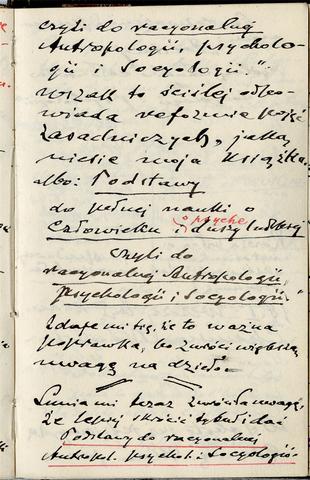 czyli do racyonalnej
Antropologii, psycholo-
gii i Socyologii."
wszak to ściślej odpo-
wiada reformie pojęć
zasadniczych, jaką
niesie moja książka.
albo: Podstawy
do pełnej nauki o
człowieku i o psyche duszy ludzkiej
czyli do
racyonalnej Antropologii,
psychologii i Socyologii."
Zdaje mi się, że to ważna
poprawka, bo zwróci większą
uwagę na dzieło.
mi teraz uwagę,
że lepiej skrócić tytuł i dać
Podstawy do racyonalnej
Antropol. psychol. i Socyologii.